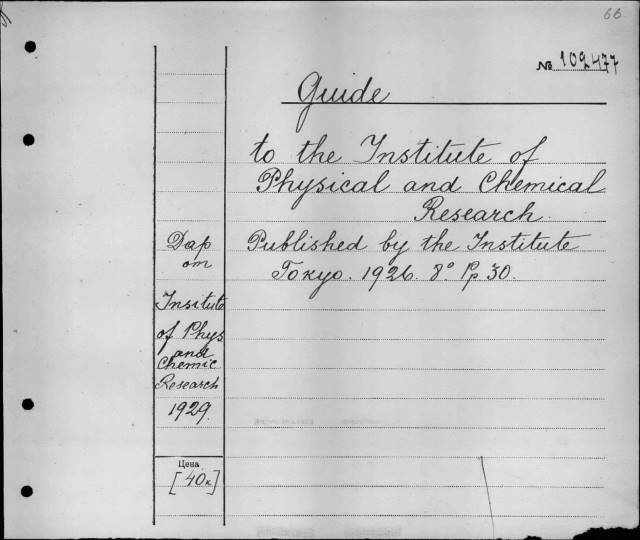 66
№ 102477
Guide
to the Institute of
Physical and Chemical
Research.
Published by the Institute
Tokyo. 1926. 8° Pp. 30.
Дар
от
Insitute
of Phys
and
Chemic
Research
1929.
Цена
[40к]